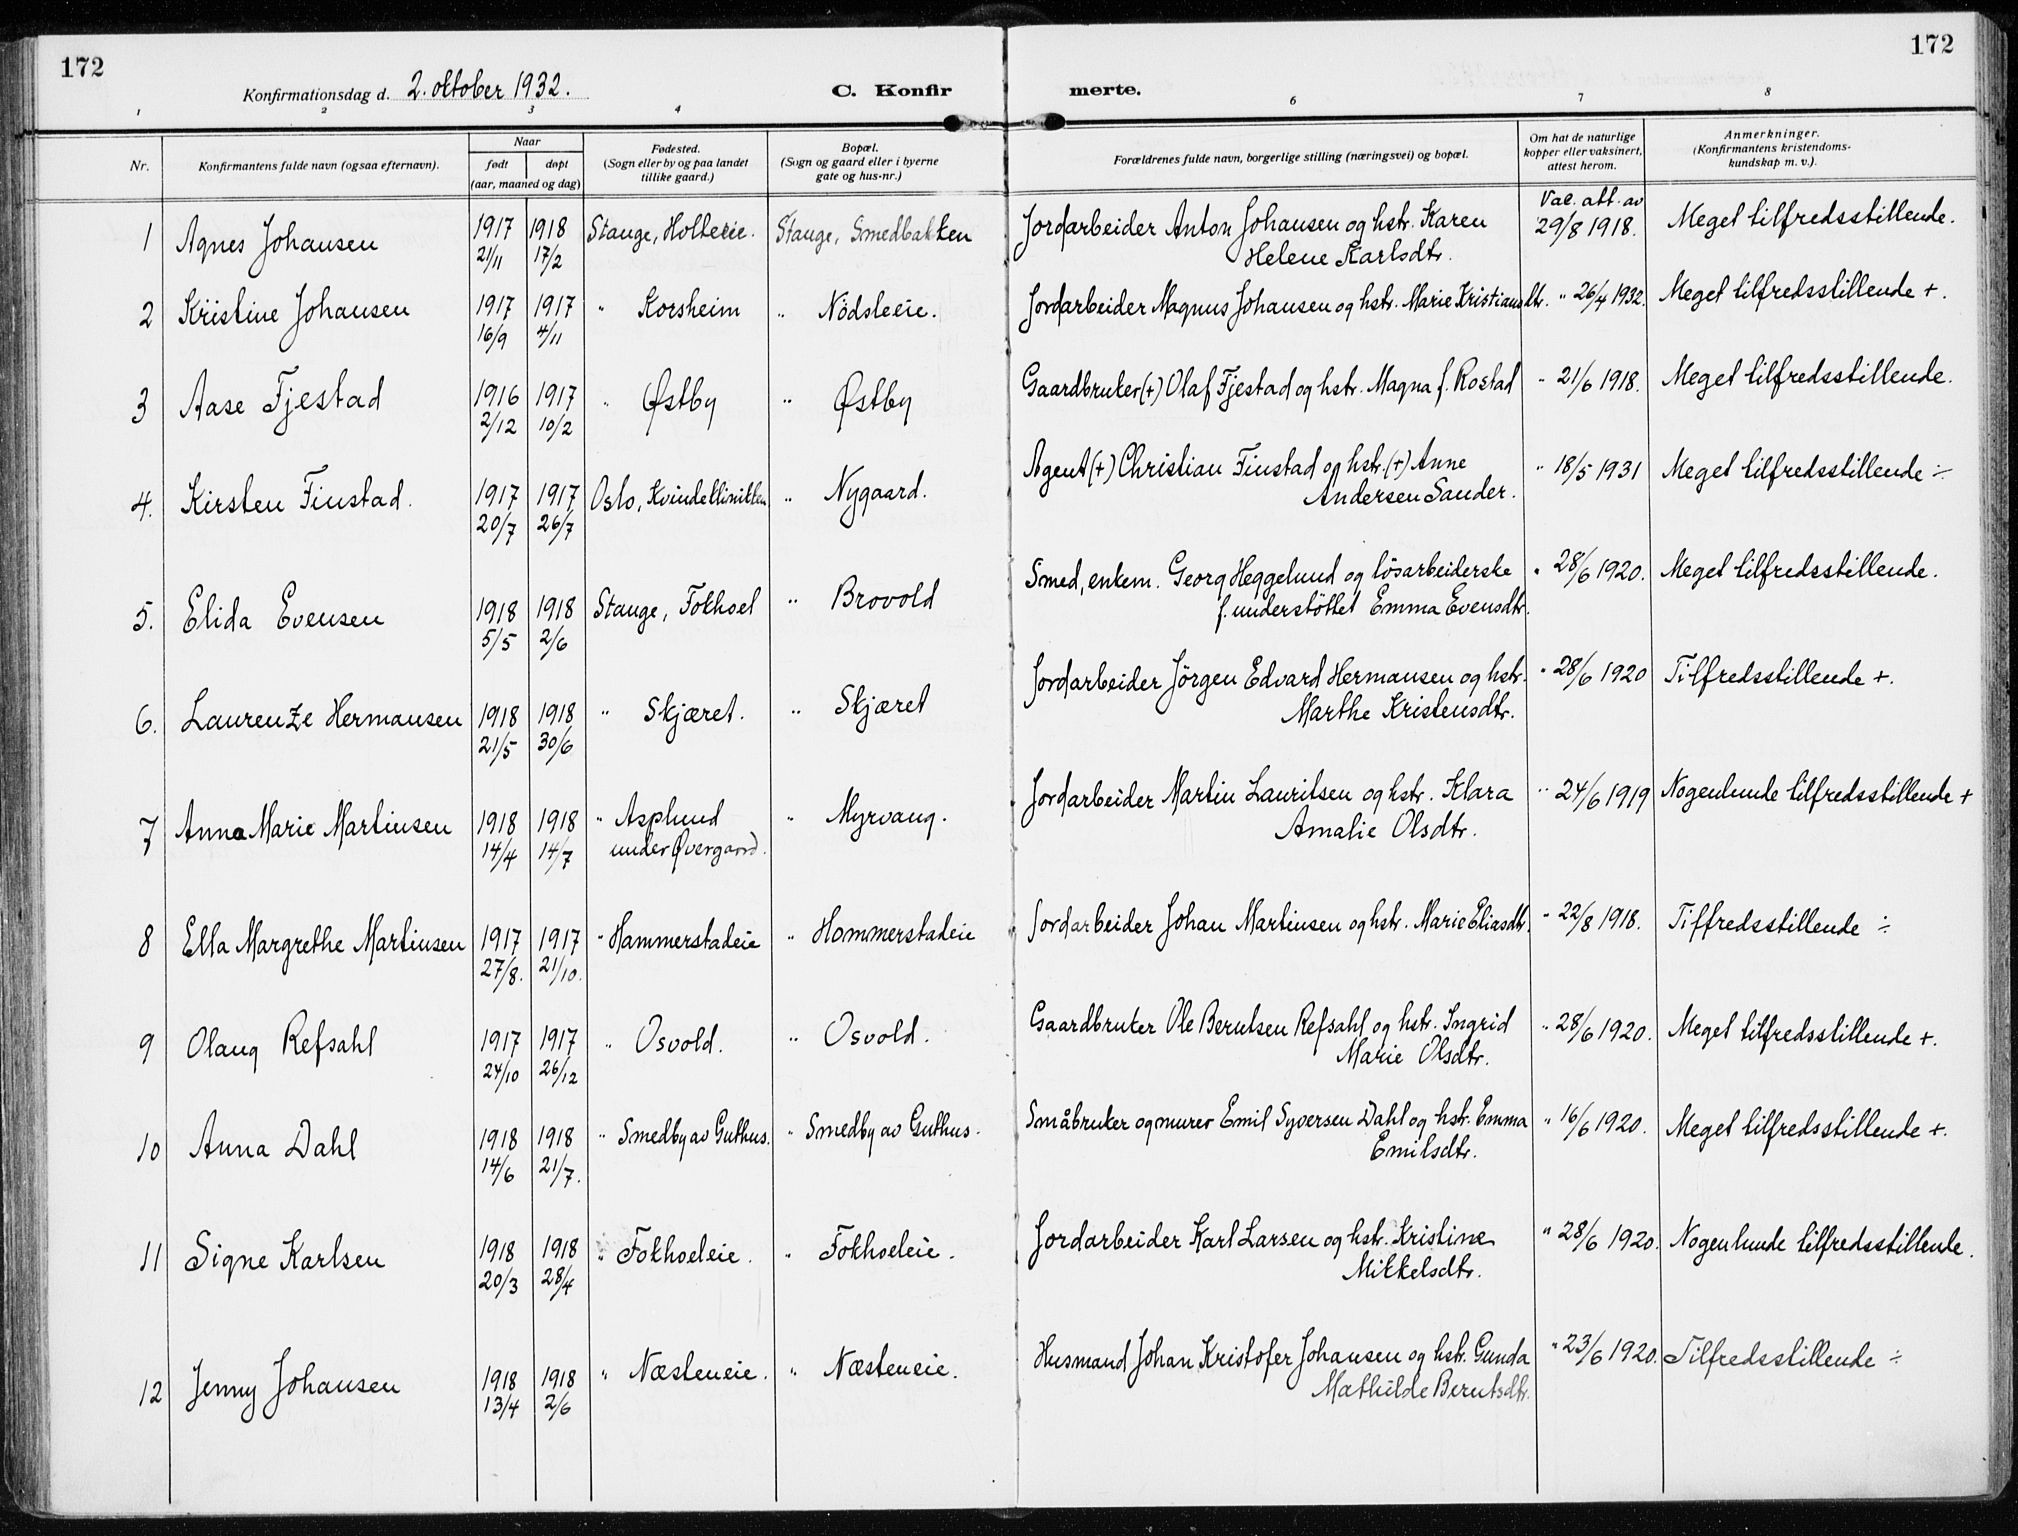 172
172
Konfirmationsdag d. 2. oktober 1932.
C. Konfirmerte.
1 2 3 4 6 7 8
Nr.
Konfirmantens fulde navn (ogsaa efternavn).
Naar
født
døpt
(aar, maaned og dag)
Fødested.
(Sogn eller by og paa landet
tillike gaard.)
Bopæl.
(Sogn og gaard eller i byerne
gate og hus-nr.)
Forældrenes fulde navn, borgerlige stilling (næringsvei) og bopæl.
Om hat de naturlige
kopper eller vaksinert,
attest herom.
Anmerkninger.
(Konfirmantens kristendoms-
kundskap m. v.).
1 Agnes Johansen 1917 1918 Stange, Holteeie. Stange, Smedbakken Jordarbeider Anton Johansen og hstr. Karen Vac. att. av 29/8 1918. Meget tilfredsstillende.
21/11 17/2 Helene Karlsdtr.
2 Kristine Johansen 1917 1917 " Korsheim " Nödsleeie. Jordarbeider Magnus Johansen og hstr. Marie Kristiansdtr. " 26/4 1932. Meget tilfredsstillende +.
16/9 4/11
3 Aase Fjestad 1916 1917 " Østby " Østby Gaardbruker (+) Olaf Fjestad og hstr. Magna f. Rostad " 21/6 1918. Meget tilfredsstillende.
2/12 10/2
4. Kirsten Finstad. 1917 1917 Oslo, Kvindeklinikken " Nygaard. Agent (+) Christian Finstad og hstr. (+) Anne " 18/5 1931 Meget tilfredsstillende ÷
20/7 26/7 Andersen Sander.
5. Elida Evensen 1918 1918 Stange, Fokhoel " Brovold Smed, enkem. Georg Heggelund og lösarbeiderske " 28/6 1920. Meget tilfredsstillende.
5/5 2/6 f. understöttet Emma Evensdtr.
6. Laurenze Hermansen 1918 1918 " Skjæret. " Skjæret Jordarbeider Jörgen Edvard Hermansen og hstr. " 28/6 1920 Tilfredsstillende +.
21/5 30/6 Marthe Kristensdtr.
7 Anna Marie Martinsen 1918 1918 " Asplund " Myrvang. Jordarbeider Martin Lauritsen og hstr. Klara " 24/6 1919 Nogenlunde tilfredsstillende +
14/4 14/7 under Øvergaard. Amalie Olsdtr.
8 Ella Margrethe Martinsen 1917 1917 " Hammerstadeie " Hommerstadeie Jordarbeider Johan Martinsen og hstr. Marie Eliasdtr. " 22/8 1918. Tilfredsstillende ÷
27/8. 21/10.
9 Olaug Refsahl 1917 1917 " Osvold. " Osvold. Gaardbruker Ole Berntsen Refsahl og hstr. Ingrid " 28/6 1920. Meget tilfredsstillende +.
24/10 26/12 Marie Olsdtr.
10 Anna Dahl 1918 1918 " Smedby av Guthus. " Smedby av Guthus. Småbruker og murer Emil Syversen Dahl og hstr. Emma " 16/6 1920. Meget tilfredsstillende +.
14/6 21/7. Emilsdtr.
11 Signe Karlsen 1918 1918 " Fokhoeleie. " Fokhoeleie. Jordarbeider Karl Larsen og hstr. Kristine " 28/6 1920. Nogenlunde tilfredsstillende.
20/3 28/4 Mikkelsdtr.
12 Jenny Johansen 1918 1918 " Næsteneie. " Næsteneie. Husmand Johan Kristofer Johansen og hstr. Gunda " 23/6 1920. Tilfredsstillende ÷
13/4 2/6 Mathilde Berntsdtr.